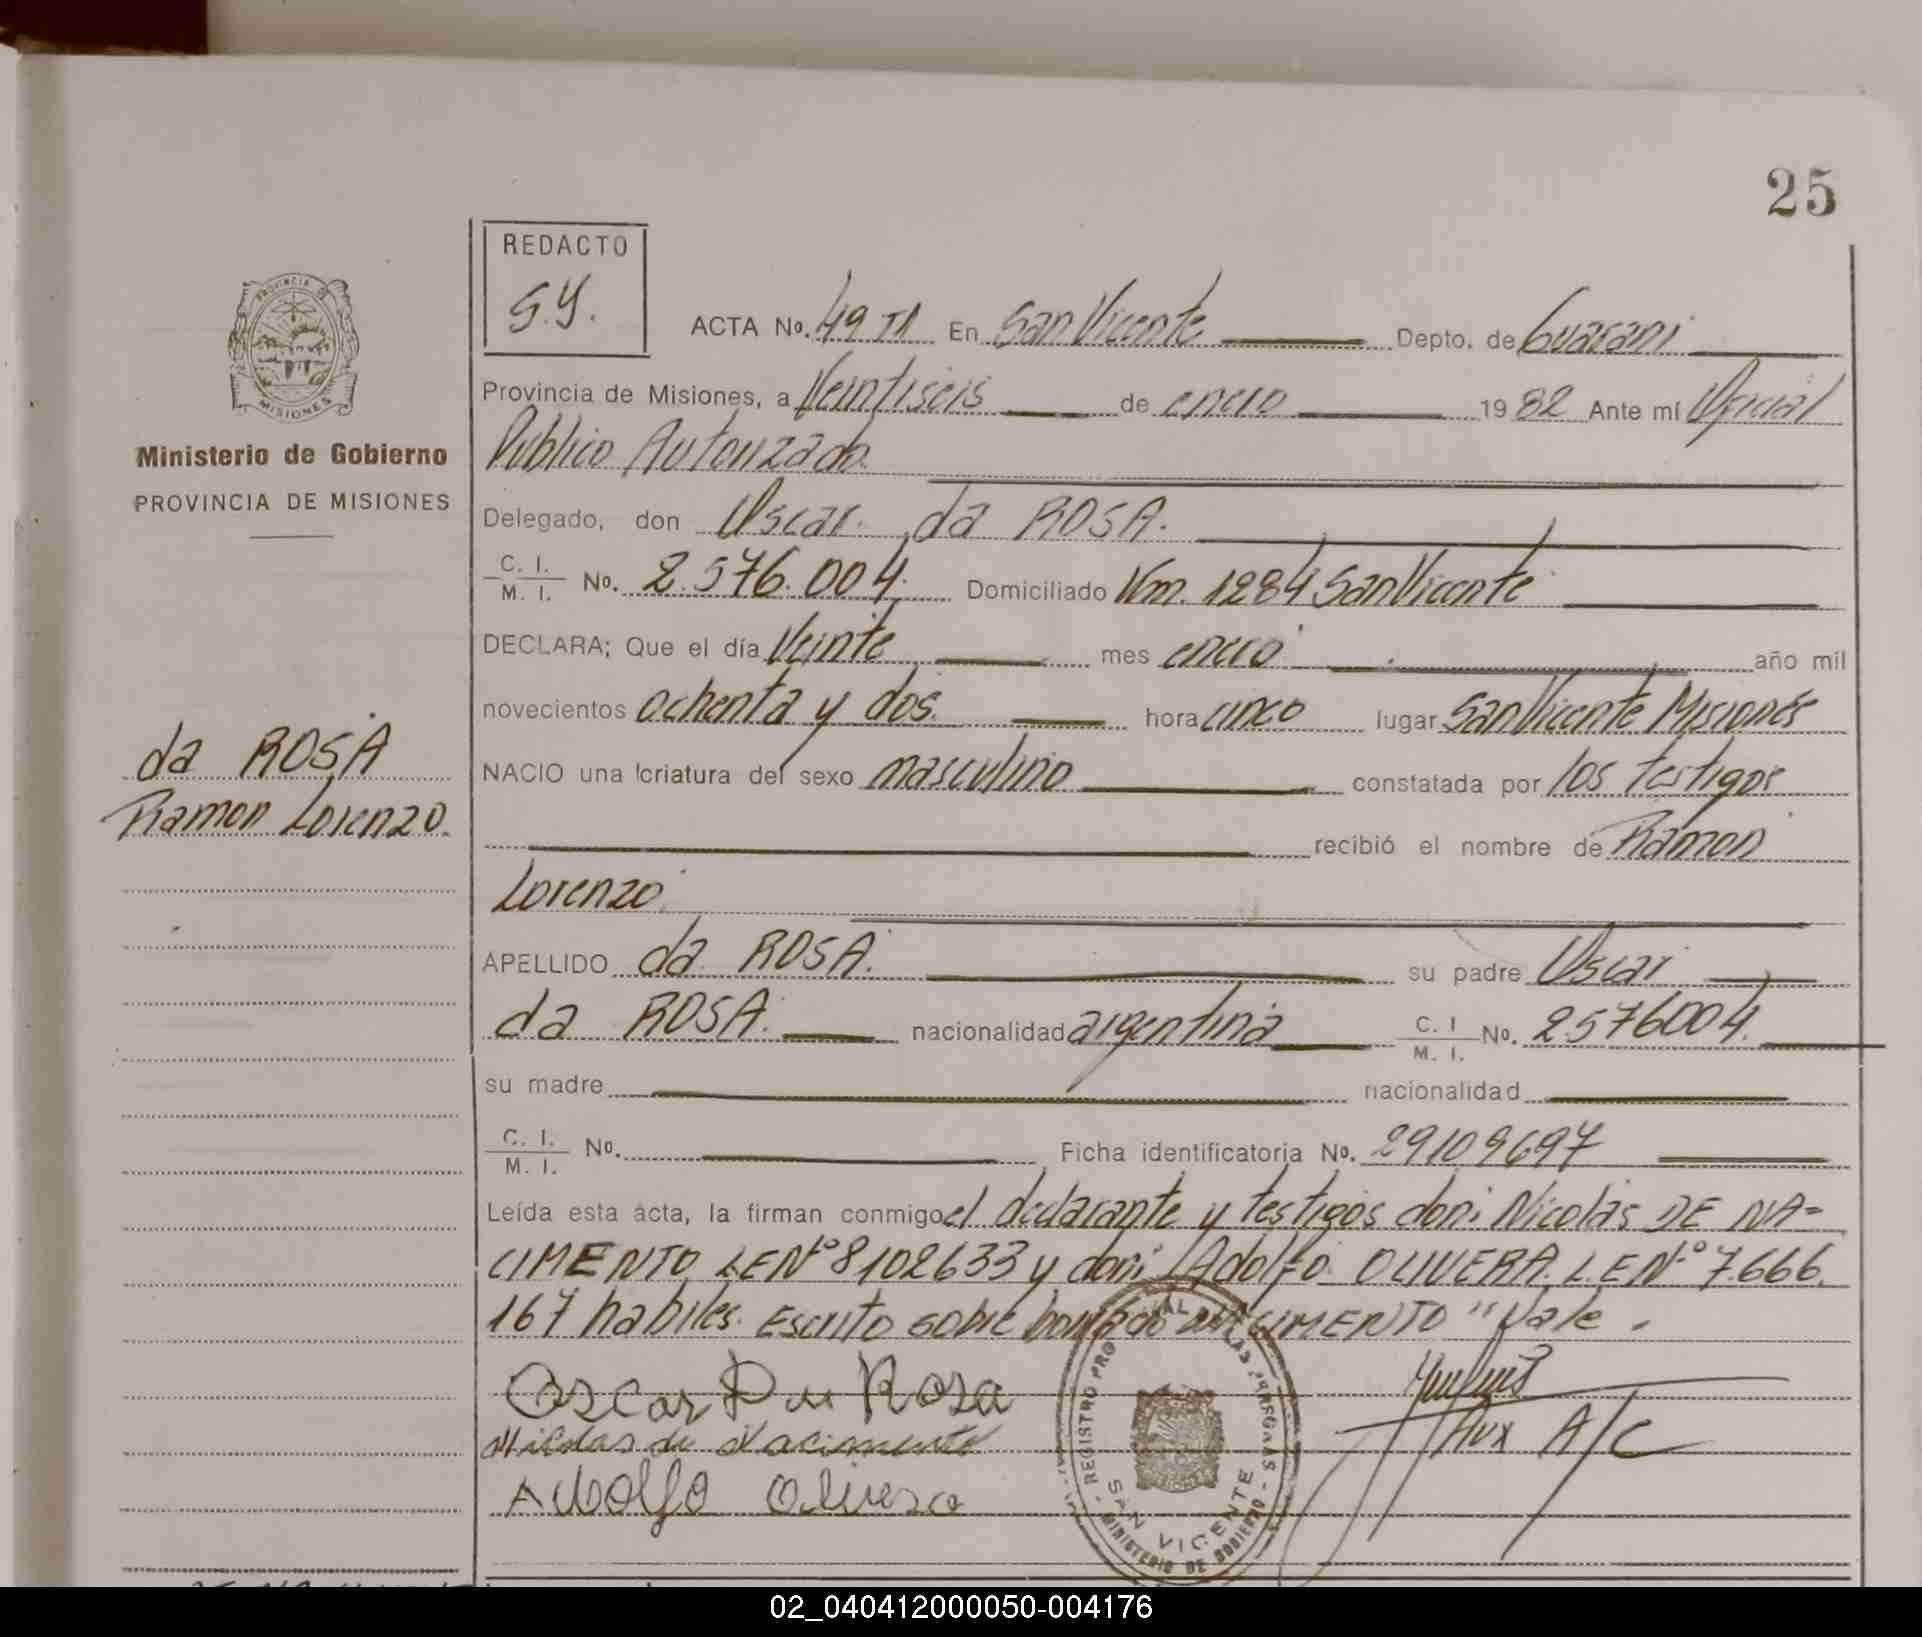 25
REDACTO
S.Y.
PROVINCIA DE
MISIONES
Ministerio de Gobierno
PROVINCIA DE MISIONES
ACTA No. 49 TI En San Vicente Depto. de Guarani
Provincia de Misiones, a Veintiseis de enero 1982 Ante mi Oficial
Publico Autorizado.
Delegado, don Oscar da ROSA.
C. I. / M. I. No. 2.576.004. Domiciliado Km. 1284 San Vicente
DECLARA; Que el día Veinte mes enero año mil
novecientos ochenta y dos. hora cinco lugar San Vicente Misiones
da ROSA
Ramon Lorenzo.
NACIO una criatura del sexo masculino constatada por los testigos
recibió el nombre de Ramon
Lorenzo.
APELLIDO da ROSA. su padre Oscar
da ROSA. nacionalidad argentina C. I / M. I. No. 2576004.
su madre nacionalidad
C. I. / M. I. No. Ficha identificatoria No. 29109697
Leída esta acta, la firman conmigo el declarante y testigos don: Nicolás DE NA=
CIMENTO LEN° 8102633 y don: Adolfo OLIVERA L.E N° 7.666.
167 habiles. Escrito sobre borrado "NACIMENTO" Vale.
Oscar Da Rosa
Nicolas de Nacimento
Adolfo Olivera
Aux A/C
REGISTRO PROVINCIAL DE LAS PERSONAS
SAN VICENTE
MINISTERIO DE GOBIERNO
02_040412000050-004176